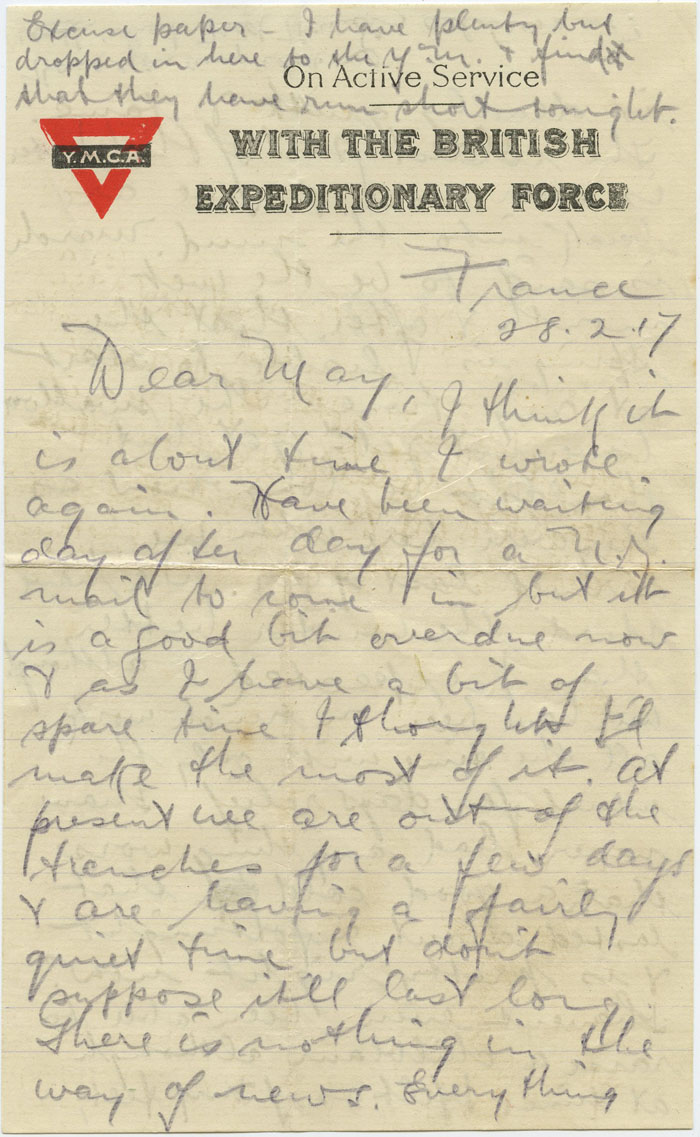 Excuse paper – I have plenty but
dropped in here to the Y.M. & find
that they have run short tonight.
On Active Service
Y.M.C.A.
WITH THE BRITISH
EXPEDITIONARY FORCE
France
28.2.17
Dear May, I think it
is about time I wrote
again. Have been waiting
day after day for a N.Z.
mail to come in but it
is a good bit overdue now
& as I have a bit of
spare time I thought I'd
make the most of it. At
present we are out of the
trenches for a few days
& are having a fairly
quiet time but don't
suppose it'll last long.
There is nothing in the
way of news. Everything